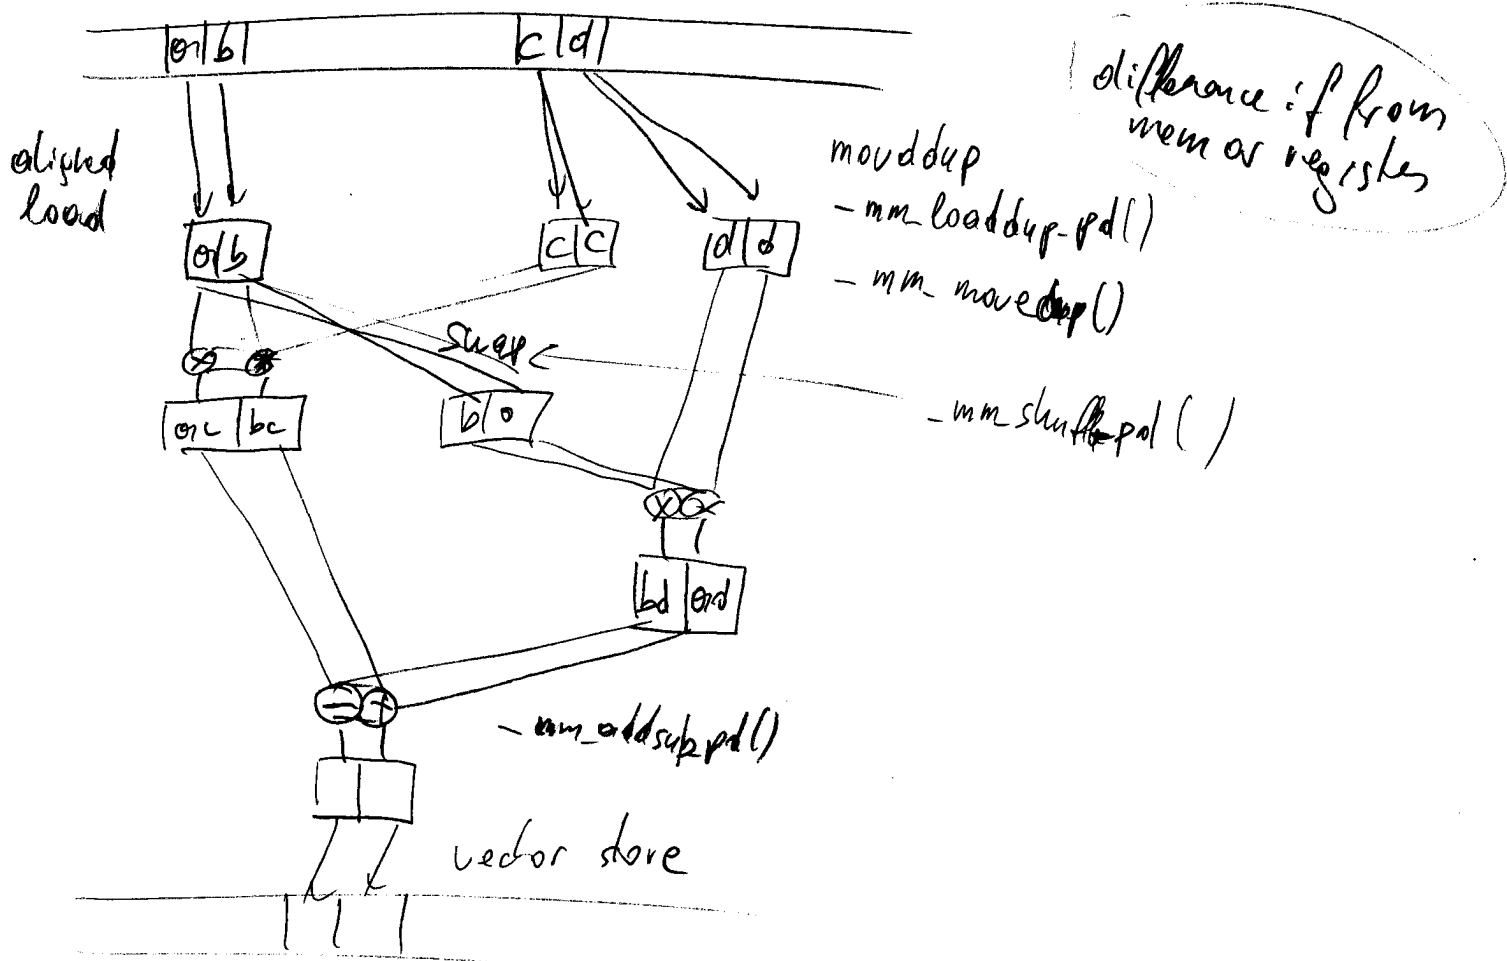 a b
c d
difference if from
mem or register
aligned
load
movddup
_mm_loaddup_pd()
_mm_movedup()
a b
c c
d d
swap
_mm_shuffle_pd()
ac bc
b a
bd ad
- +
_mm_addsub_pd()
vector store